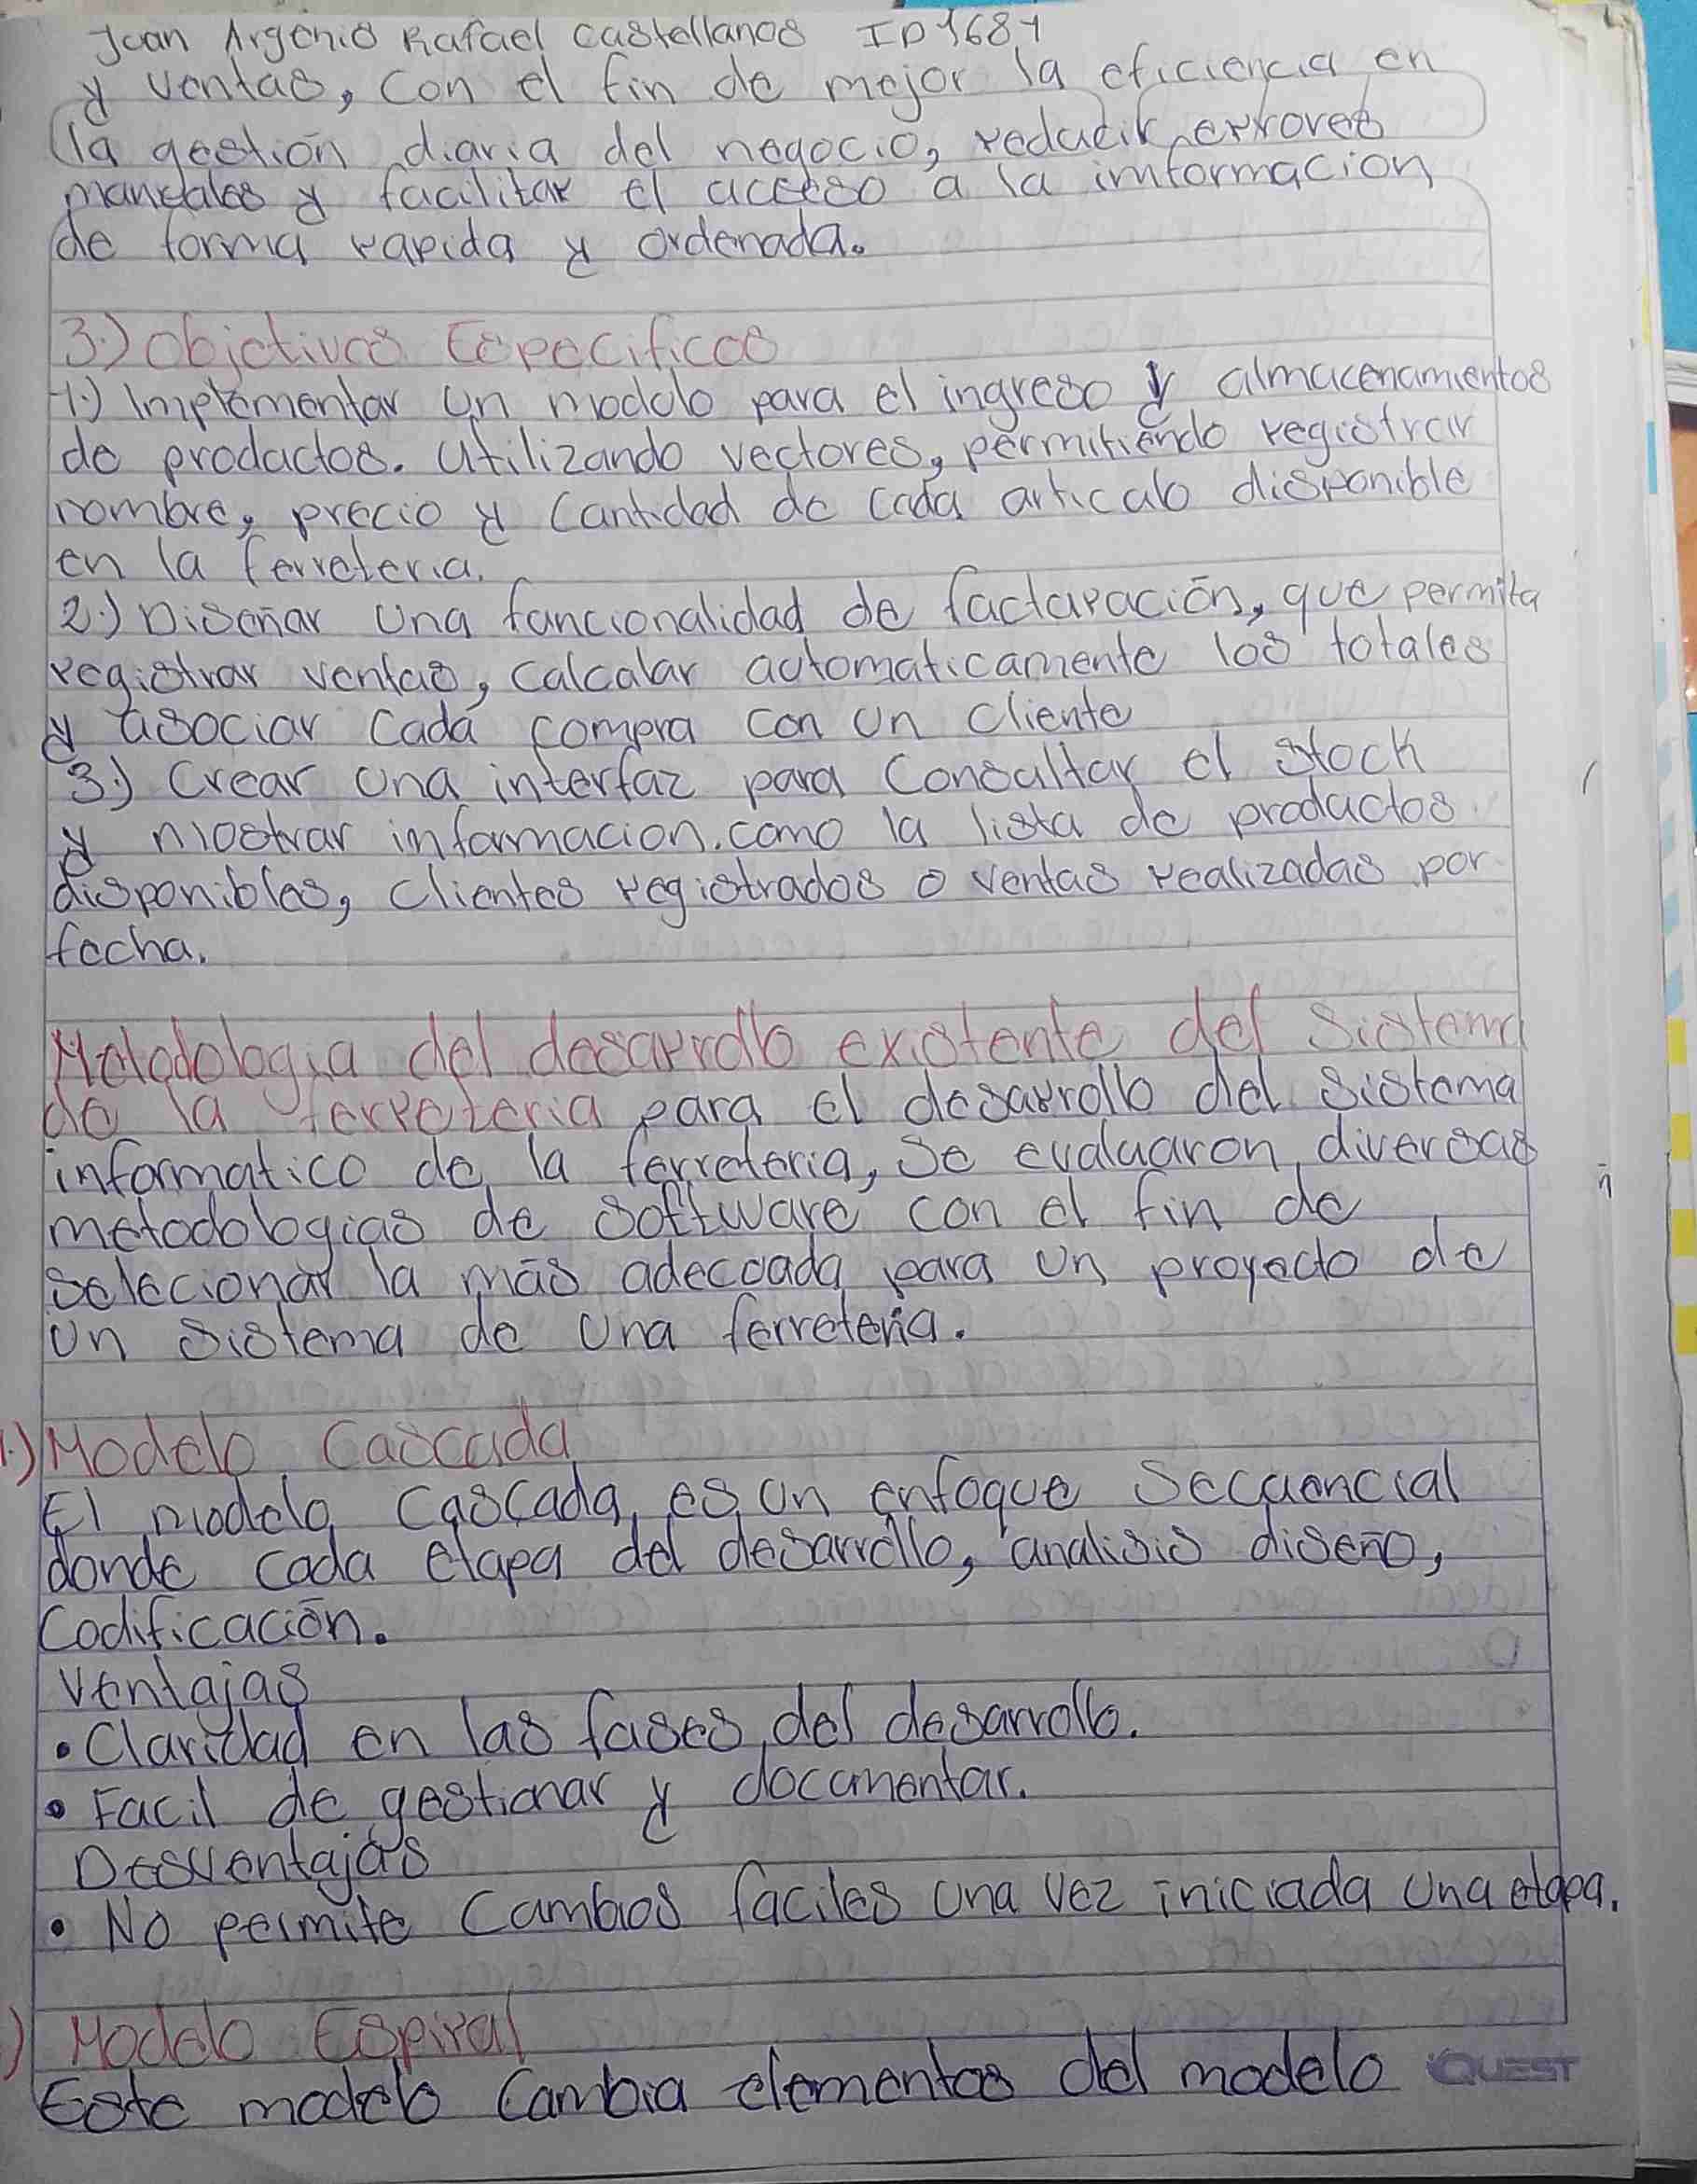 Juan Argenio Rafael Castellanos ID 1684
y ventas, con el fin de mejor la eficiencia en
la gestión diaria del negocio, reducir errores
manuales y facilitar el acceso a la imformacion
de forma rapida y ordenada.
3.) Objetivos Especificos
1.) Implementar un modulo para el ingreso y almacenamientos
de productos. Utilizando vectores, permitiendo registrar
nombre, precio y cantidad de cada articulo disponible
en la ferreteria.
2.) Diseñar una funcionalidad de facturación, que permita
registrar ventas, calcular automaticamente los totales
y asociar cada compra con un cliente
3.) Crear una interfaz para consultar el stock
y mostrar informacion. como la lista de productos
disponibles, clientes registrados o ventas realizadas por
fecha.
Metodologia del desarrollo existente del sistema
de la ferreteria para el desarrollo del sistema
informatico de la ferreteria, se evaluaron diversas
metodologias de software con el fin de
selecionar la más adecuada para un proyecto de
un sistema de una ferreteria.
1.) Modelo Cascada
El modelo cascada es un enfoque secuencial
donde cada etapa del desarrollo, analisis diseño,
Codificación.
Ventajas
• Claridad en las fases del desarrollo.
• Facil de gestionar y documentar.
Desventajas
• No permite cambios faciles una vez iniciada una etapa.
) Modelo Espiral
Este modelo cambia elementos del modelo
QUEST